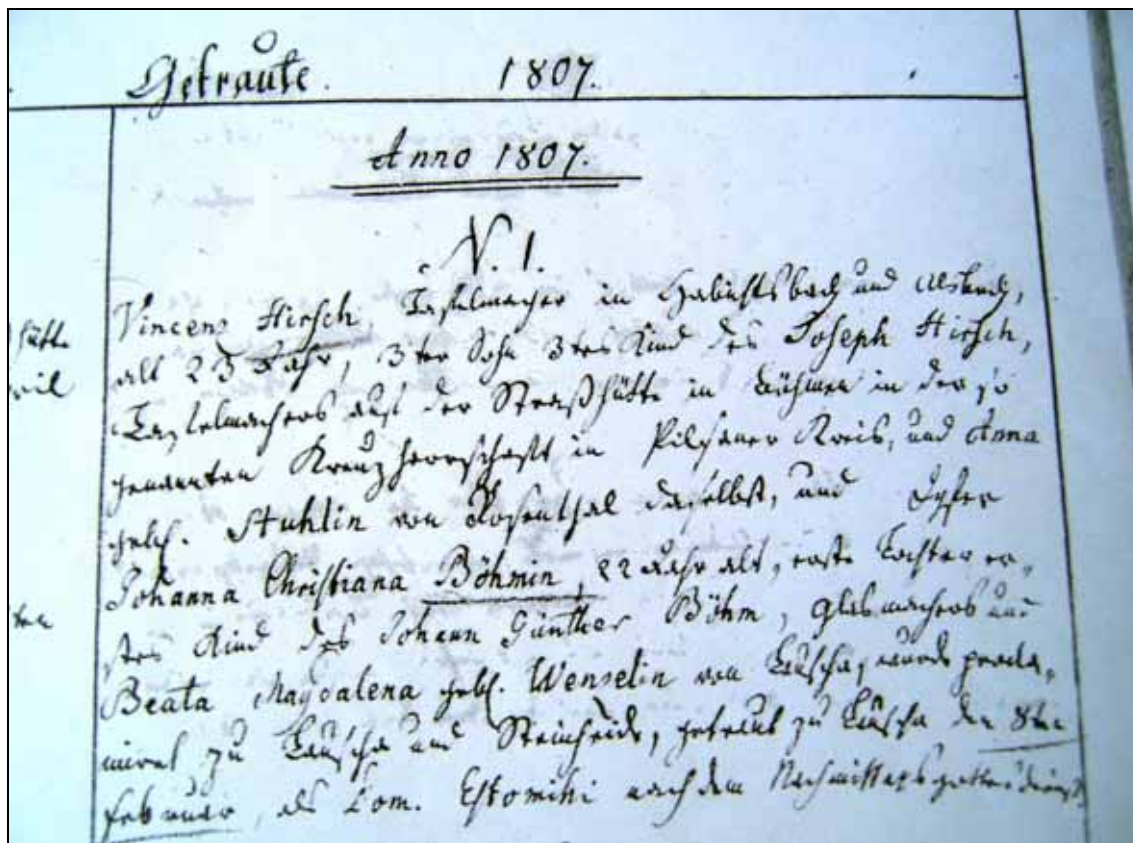 Getraute. 1807.
Anno 1807.
N. 1.
Vincenz Hirsch Tafelmacher in Habichtsbach und Alsbach,
alt 23 Jahr, 3ter Sohn 3tes Kind des Joseph Hirsch,
Tafelmachers auf der Straßhütte in Böhmen in der so
genannten Kreuzherrschaft in Pilsener Kreis, und Anna
gebh. Stuhlin von Rosenthal daselbst, und
Johanna Christiana Böhmin, 22 Jahr alt, erste Tochter er-
stes Kind des Johann Günther Böhm, Glasmachers und
Beata Magdalena gebh. Wenzelin von Lauscha, wurde procla-
miret zu Lauscha und Steinheide, getraut zu Lauscha den 8ten
Februar, als Dom. Estomihi nach dem Nachmittagsgottesdienst
hütte
ten